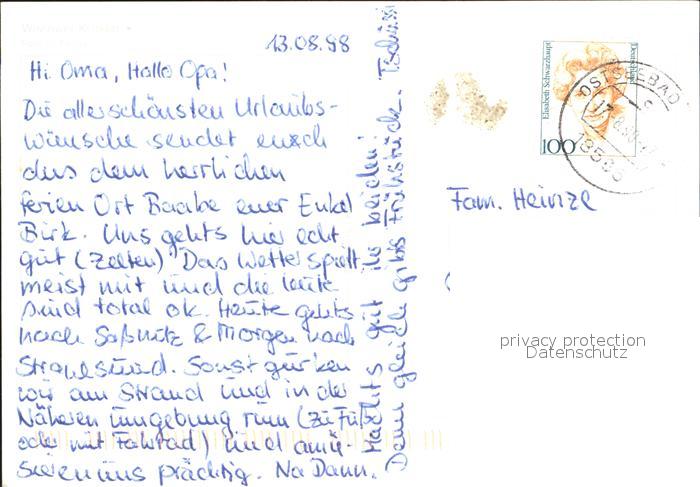 13.08.98
Hi Oma, Hallo Opa!
Die allerschönsten Urlaubs-
wünsche sendet euch
aus dem herrlichen
ferien Ort Baabe euer Enkel
Birk. Uns gehts hier echt
gut (Zelten) Das Wetter spielt
meist mit und die leute
sind total ok. Heute gehts
nach Saßnitz & Morgen nach
Stralsund. Sonst gurken
wir am Strand und in der
Näheren umgebung rum (zu Fuß
oder mit Fahrrad) und amü-
sieren uns prächtig. Na Dann.
Machts gut ihr beiden!
Denn gleich gibts Frühstück. Tschüssi
Elisabeth Schwarzhaupt
Deutsche Bundespost
100
OSTSEEBAD
Fam. Heinze
privacy protection
Datenschutz